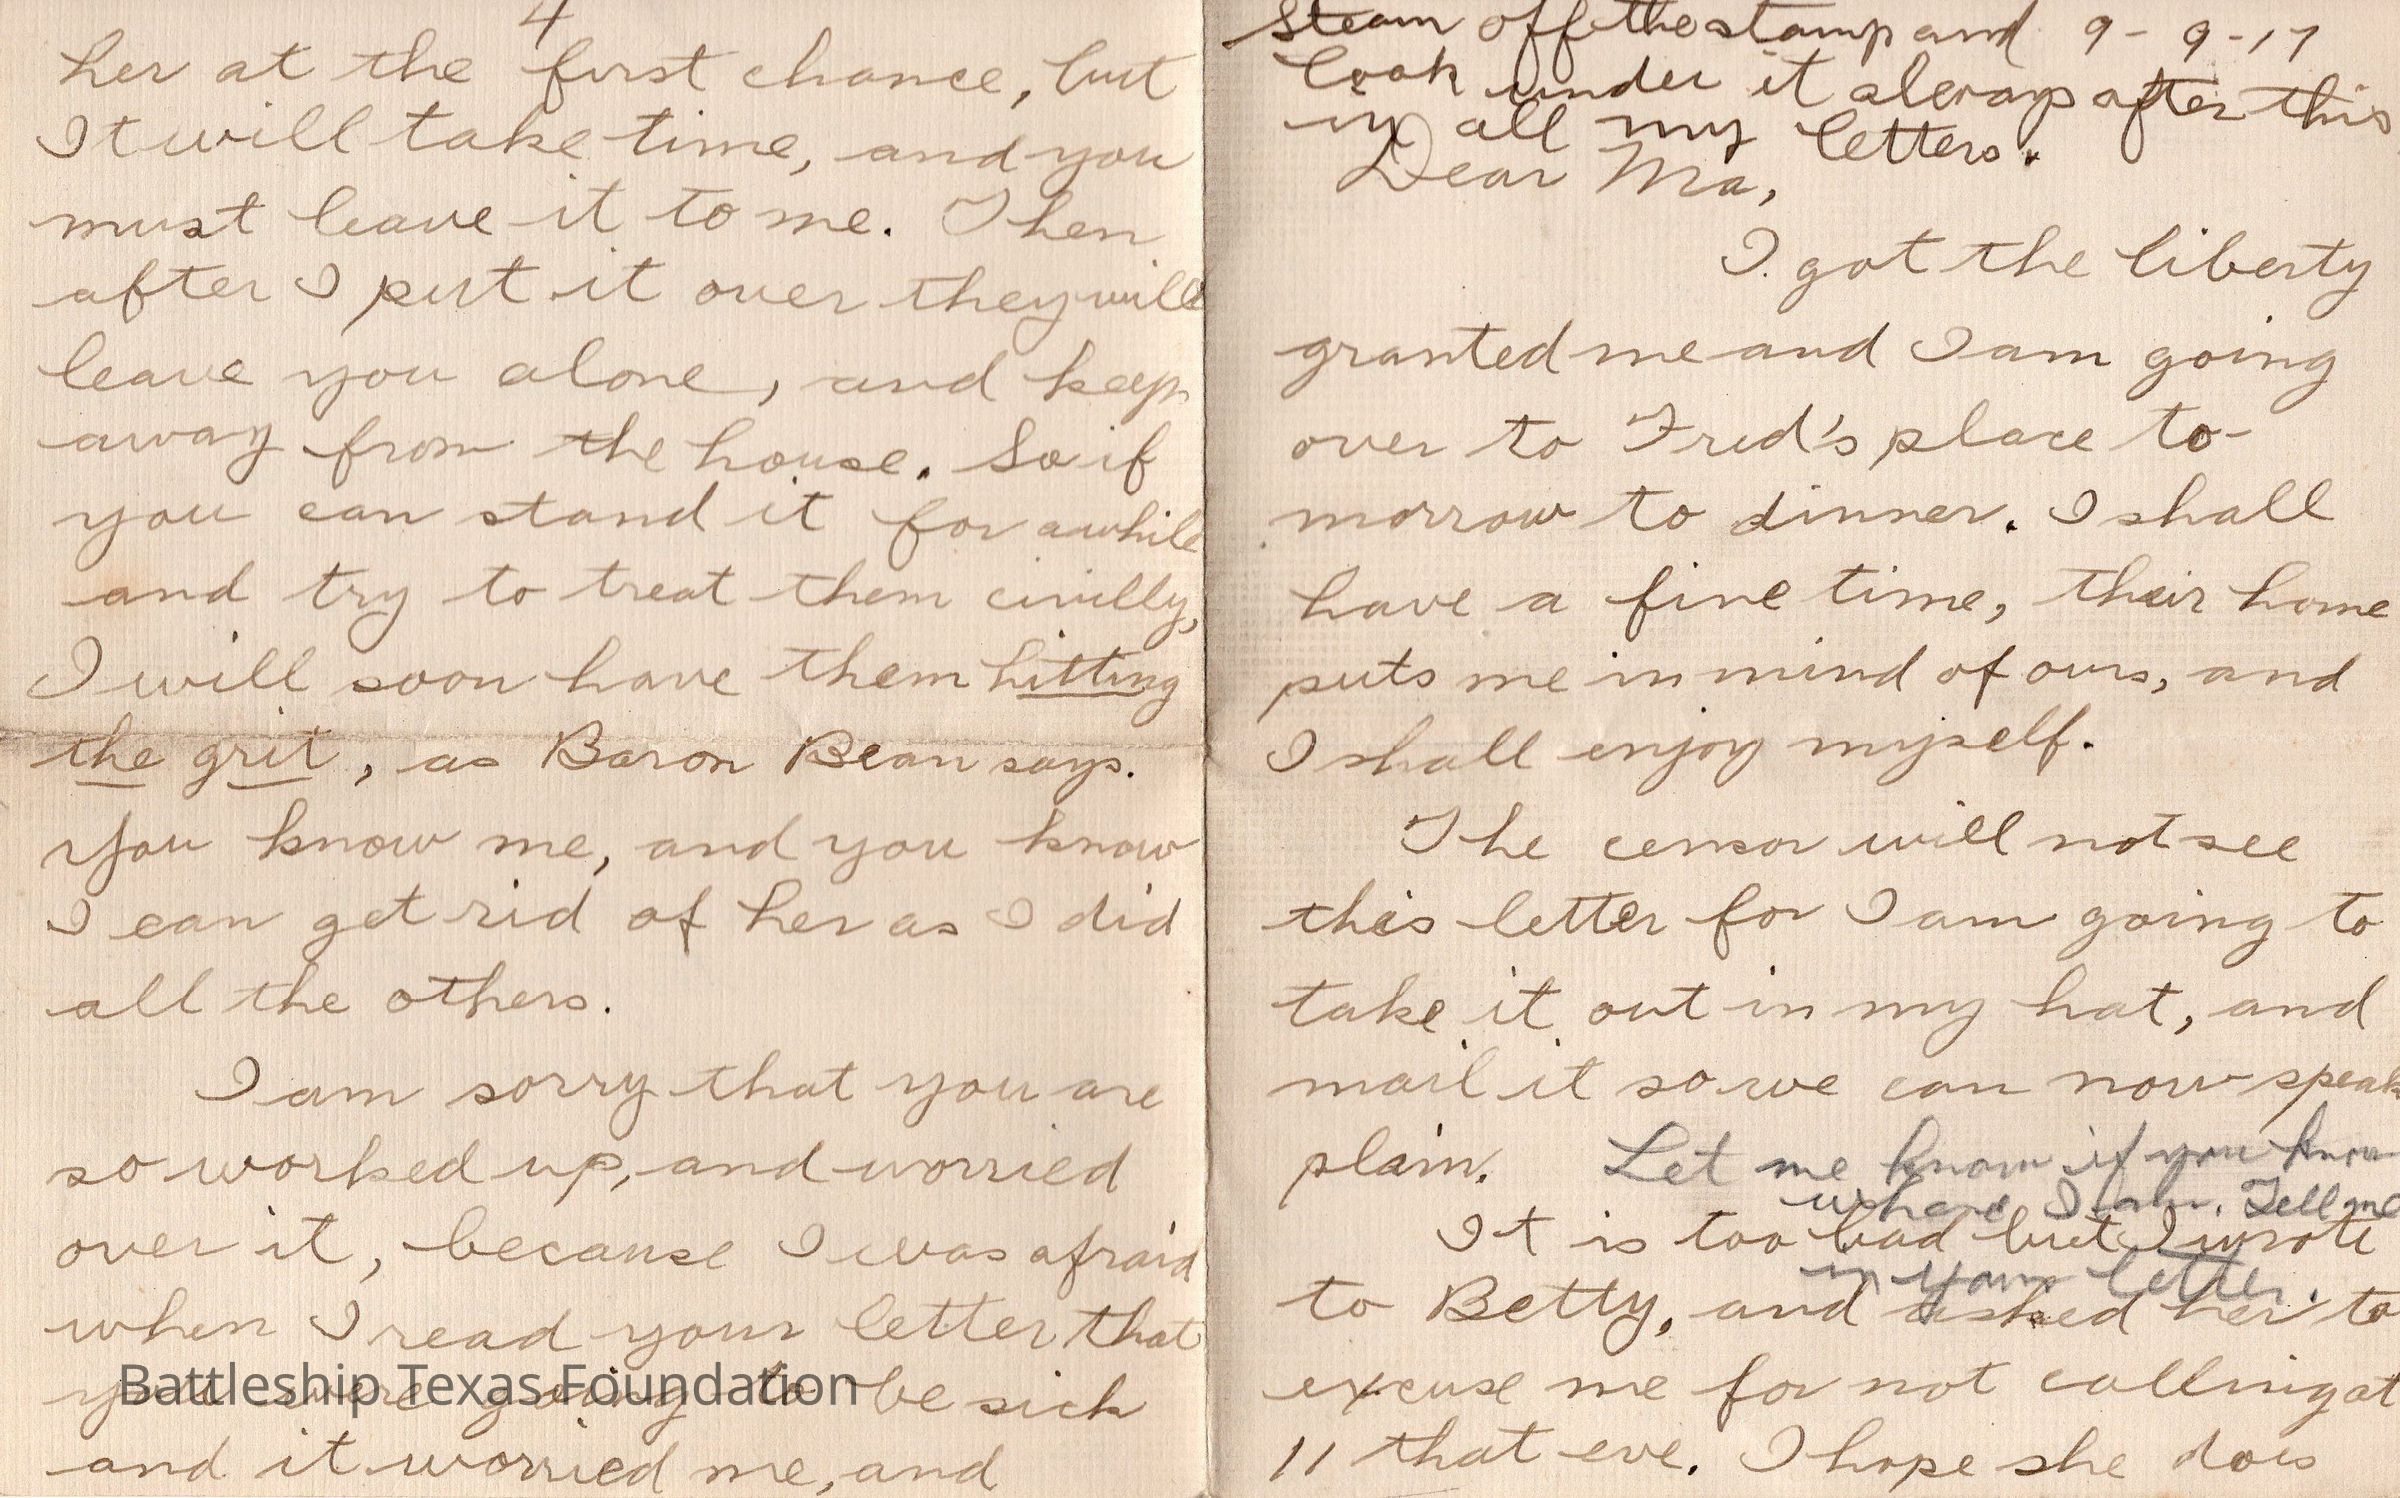 4
her at the first chance, but
It will take time, and you
must leave it to me. Then
after I put it over they will
leave you alone, and keep
away from the house. So if
you can stand it for awhile
and try to treat them civilly,
I will soon have them hitting
the grit, as Baron Bean says.
You know me, and you know
I can get rid of her as I did
all the others.
I am sorry that you are
so worked up, and worried
over it, because I was afraid
when I read your letter that
you were going to be sick
and it worried me, and
Battleship Texas Foundation
Steam off the stamp and 9-9-17
look under it always after this
in all my letters.
Dear Ma,
I got the liberty
granted me and I am going
over to Fred's place to-
morrow to dinner. I shall
have a fine time, their home
puts me in mind of ours, and
I shall enjoy myself.
The censor will not see
this letter for I am going to
take it out in my hat, and
mail it so we can now speak
plain. Let me know if you know
where I am. Tell me
in your letter.
It is too bad but I wrote
to Betty, and asked her to
excuse me for not calling at
11 that eve. I hope she does